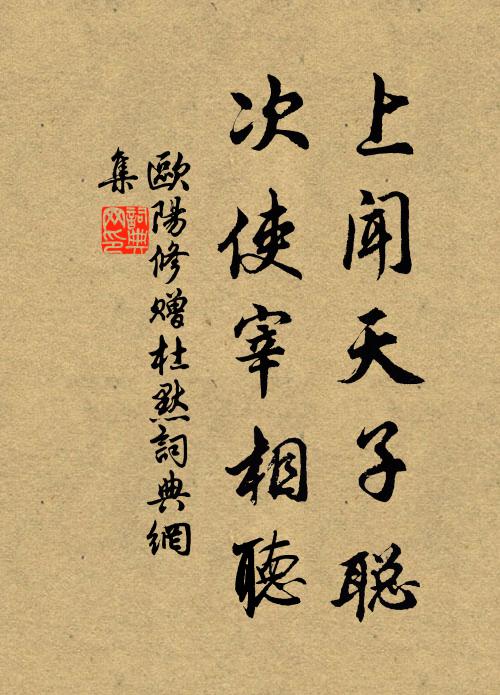 上闻天子聪
次使宰相聽
歐陽修赠杜默詞典網
集
詞典
网印